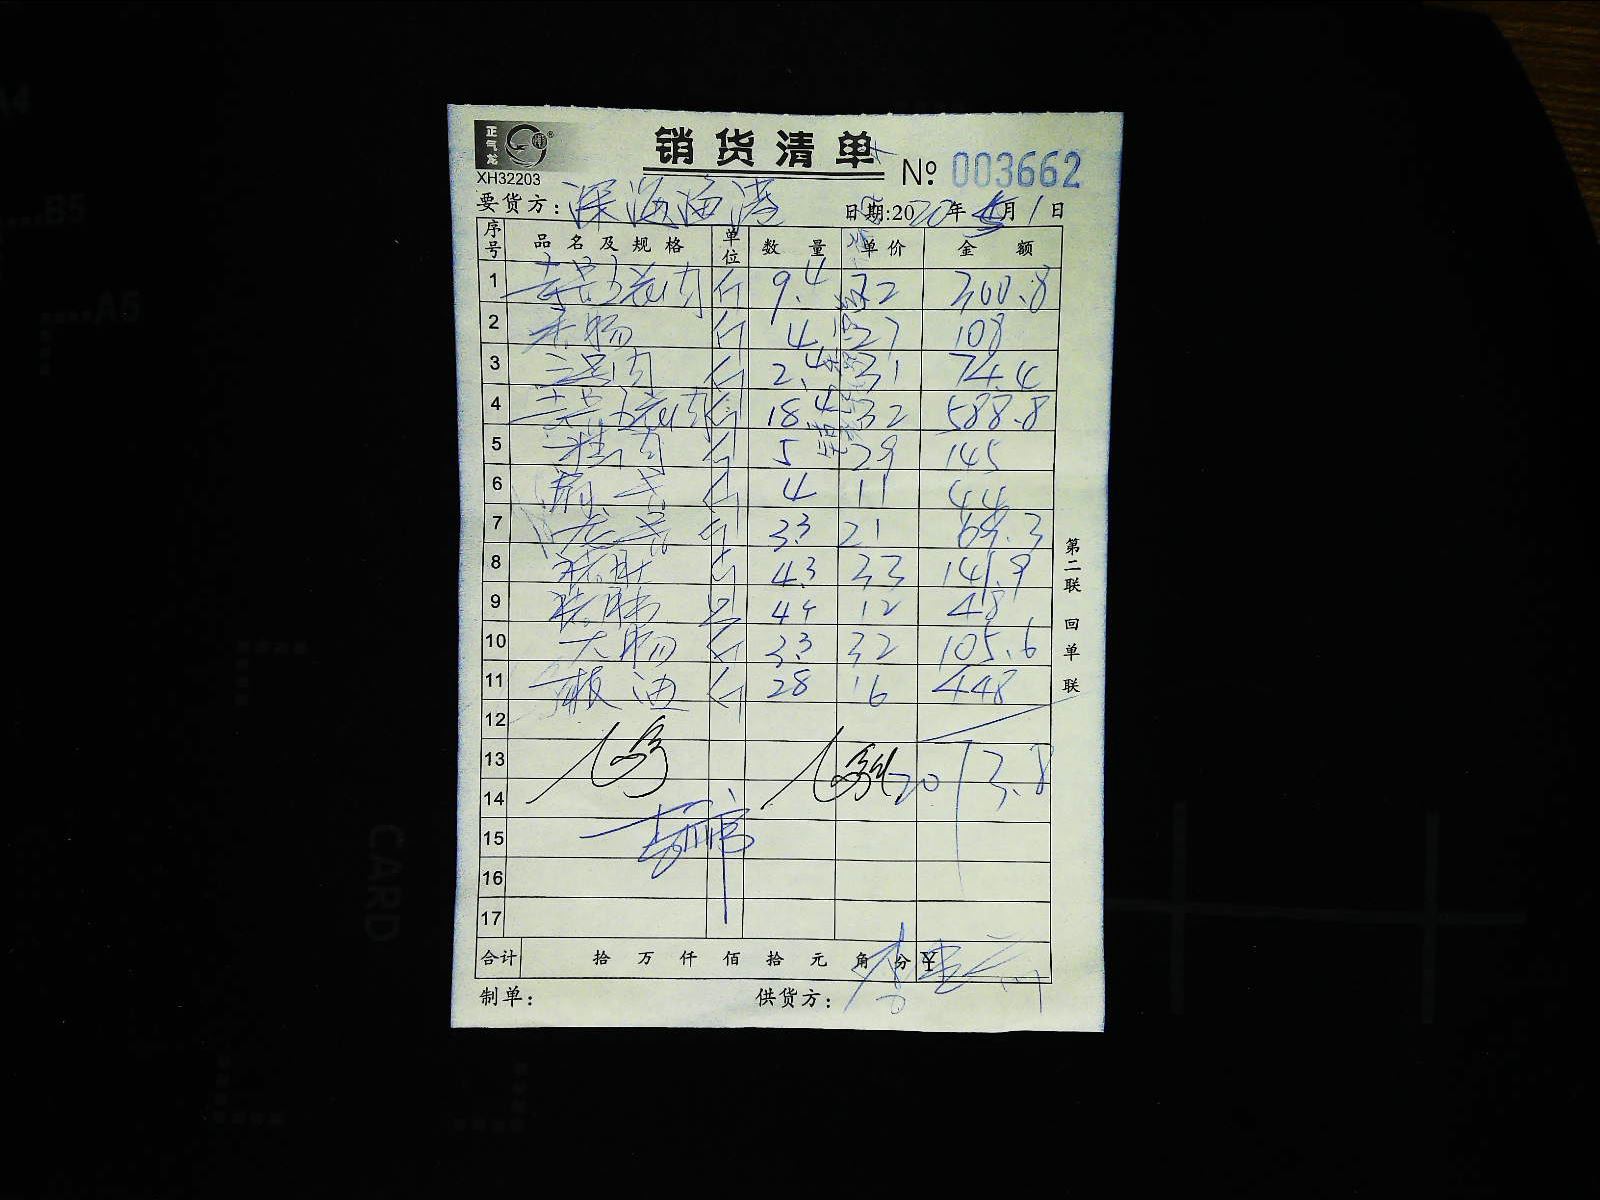 正气龙
XH32203
销货清单
№ 003662
要货方: 深海渔港
日期:2020年5月1日
序号 品名及规格 单位 数量 单价 金额
1 斤 9.4 32 300.8
2 斤 4 27 108
3 二号肉 斤 2.4 31 74.4
4 斤 18.4 32 588.8
5 肉 斤 5 29 145
6 斤 4 11 44
7 斤 3.3 21 69.3
8 猪肚 斤 4.3 33 141.9
9 猪肺 4个 12 48
10 大肠 斤 3.3 32 105.6
11 板油 斤 28 16 448
12
13 2073.8
14
15
16
17
合计 拾 万 仟 佰 拾 元 角 分 ¥
制单: 供货方:
第二联 回单联
A4
B5
A5
CARD